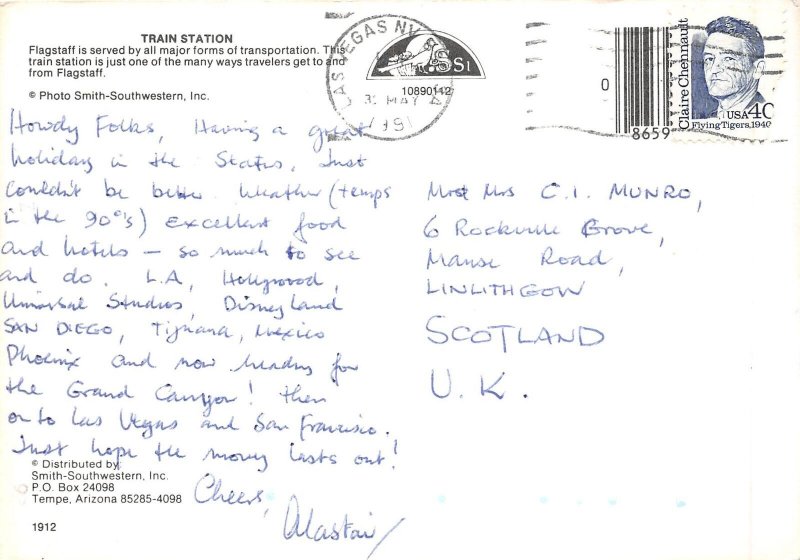 TRAIN STATION
Flagstaff is served by all major forms of transportation. This
train station is just one of the many ways travelers get to and
from Flagstaff.
© Photo Smith-Southwestern, Inc.
LAS VEGAS NV
MAY
10890142
0
8659
Claire Chennault
USA 40
Flying Tigers, 1940
Howdy Folks, Having a great
holiday in the States. Just
couldn't be better. Weather (temps
in the 90°'s) Excellent food
and hotels — so much to see
and do. L.A, Hollywood,
Universal Studios, Disneyland
SAN DIEGO, Tijuana, Mexico
Phoenix and now heading for
the Grand Canyon! then
on to Las Vegas and San Francisco.
Just hope the money lasts out!
Cheers,
Alastair
Mr & Mrs C.I. MUNRO,
6 Rockville Grove,
Manse Road,
LINLITHGOW
SCOTLAND
U.K.
© Distributed by
Smith-Southwestern, Inc.
P.O. Box 24098
Tempe, Arizona 85285-4098
1912